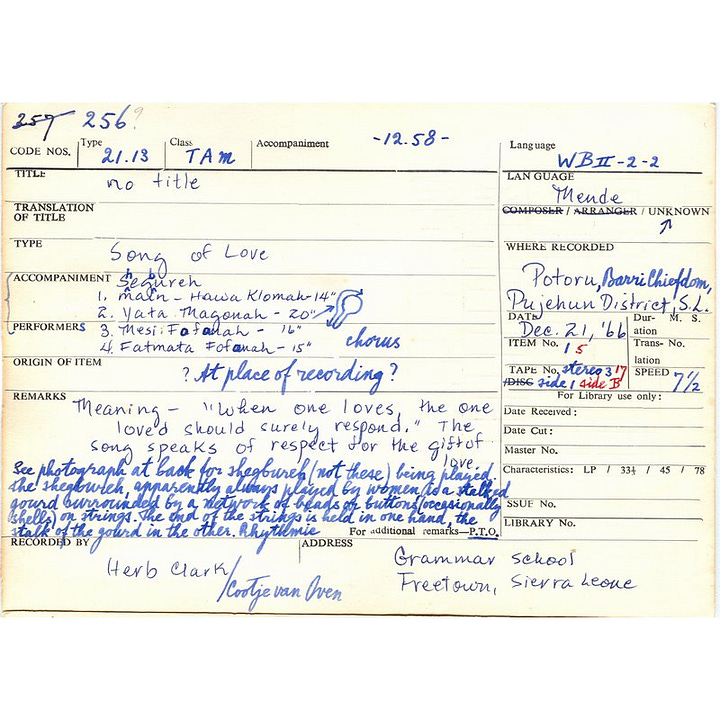 257 256?
CODE NOS. Type 21.13 Class TAM Accompaniment -12.58- Language WB II-2-2
TITLE no title
LANGUAGE Mende
TRANSLATION OF TITLE
COMPOSER / ARRANGER / UNKNOWN
TYPE Song of Love
WHERE RECORDED
Potoru, Barri Chiefdom,
Pujehun District, S.L.
ACCOMPANIMENT Shegbureh
1. main - Hawa Klomah - 14"
2. Yata Magonah - 20"
PERFORMERS 3. Mesi Fofanah - 16"
4. Fatmata Fofanah - 15"
chorus
DATE Dec. 21, '66
Duration M. S.
ITEM No. 15
Trans- No.
lation
TAPE No. stereo 3 17
/DISC side 1 side B
SPEED 7 1/2
ORIGIN OF ITEM
? At place of recording ?
For Library use only:
Date Received:
Date Cut:
Master No.
Characteristics: LP / 33⅓ / 45 / 78
SSUE No.
LIBRARY No.
REMARKS Meaning - "When one loves, the one
loved should surely respond." The
song speaks of respect for the gift of
love.
See photograph at back for shegbureh (not these) being played.
The shegbureh, apparently always played by women, is a stalked
gourd surrounded by a network of beads or buttons (occasionally
shells) on strings. The end of the strings is held in one hand, the
stalk of the gourd in the other. Rhythmic
For additional remarks—P.T.O.
RECORDED BY
Herb Clark
/Cootje van Oven
ADDRESS
Grammar School
Freetown, Sierra Leone